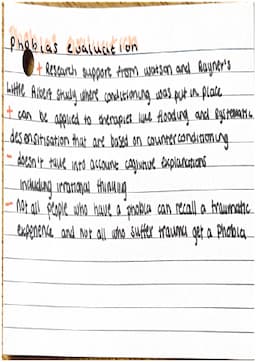 Phobias evaluation
+ Research support from Watson and Rayner's
Little Albert study where conditioning was put in place
+ can be applied to therapies like flooding and systematic
desensitisation that are based on counterconditioning
- doesn't take into account cognitive explanations
including irrational thinking
- not all people who have a phobia can recall a traumatic
experience and not all who suffer trauma get a phobia